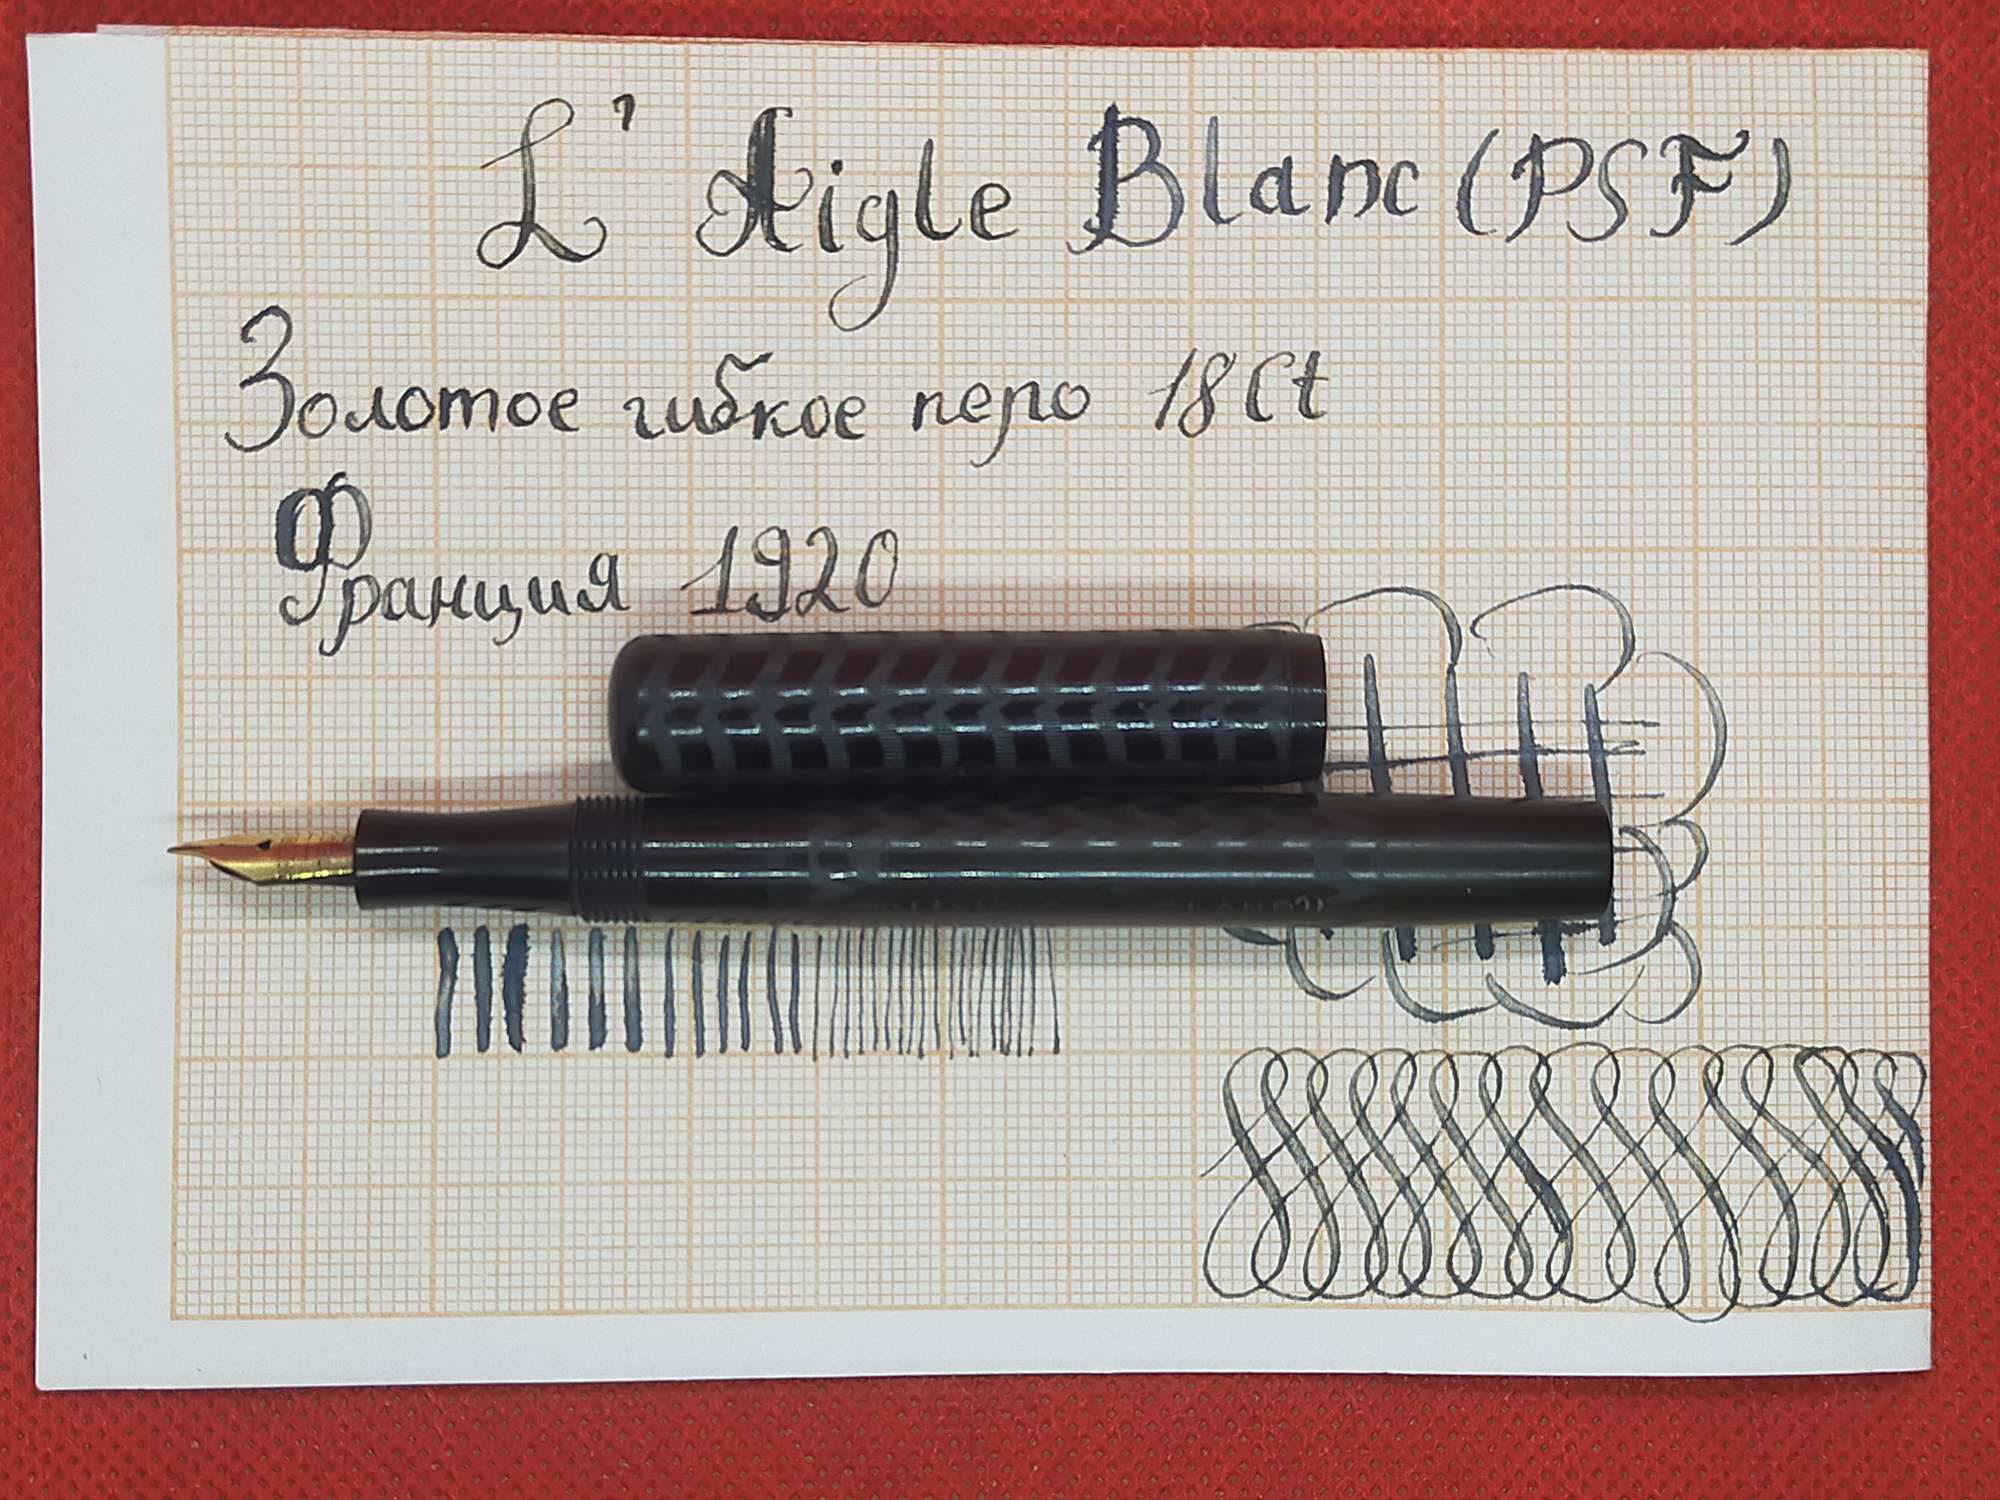 L'Aigle Blanc (PSF)
Золотое гибкое перо 18Ct
Франция 1920